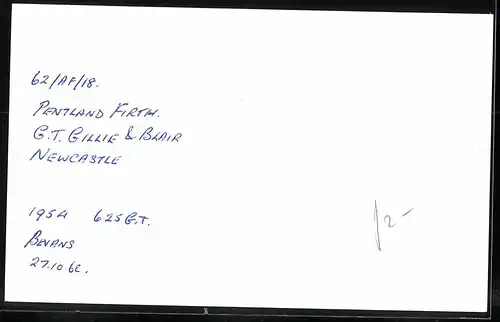 62/AF/18.
PENTLAND FIRTH.
G.T. GILLIE & BLAIR
NEWCASTLE
1954 625 G.T.
BEVANS
27.10.62.
/2-